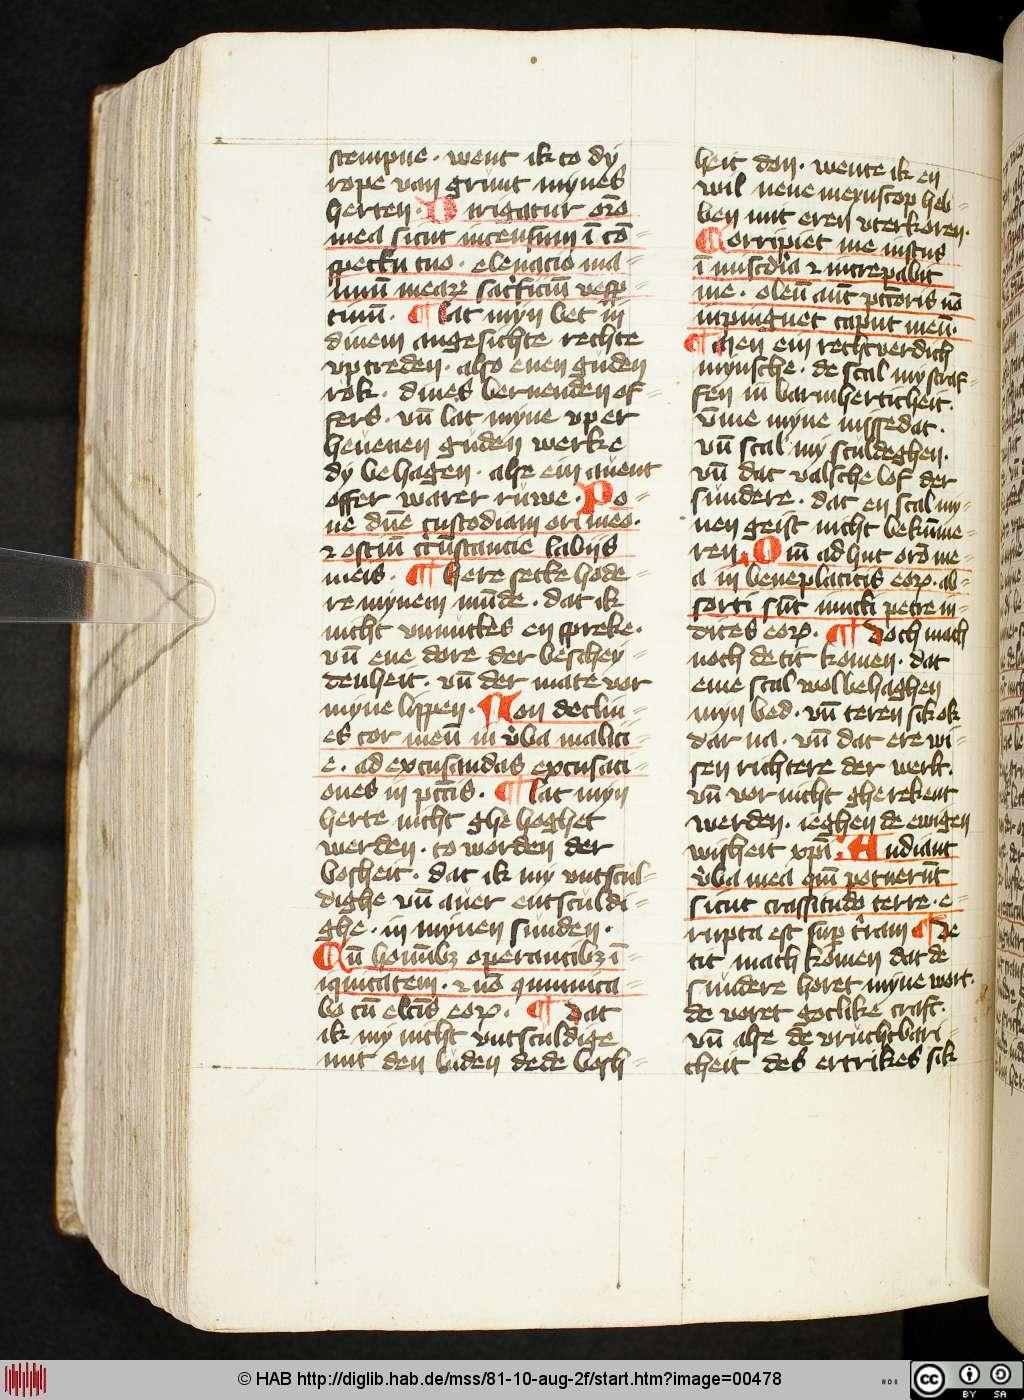 stempne · went ik to dy
rope van grunt mynes
herten · Dirigatur oro
mea sicut incensum i co=
spectu tuo · eleuacio ma=
nuu mear sacrificiu vesp=
tinu · ¶ lat myn bet in
dinem angesichte rechte
vptreden · also enen guden
rok · dines bernenden of=
fers · vn lat myne vp er
heuenen guden werke
dy behagen · alse ein auent
offer warer ruwe · Po=
ne dne custodiam ori meo ·
et ostiu circustancie labiis
meis · ¶ sette hode=
re mynem munde · dat ik
nicht vnnuttes en spreke ·
vn ene dore der beschey=
denheit · vn der mate vor
myne lippen · Non declin=
es cor meu in vba malici=
e · ad excusandas excusaci=
ones in pctis · ¶ lat myn
herte nicht ghe hoghet
werden · to worden der
bosheit · dat ik my vntscul=
dighe vn auer entsculdi=
ghe · in mynen sunden ·
Cu hominibz operantibz i=
iquitatem · et no comunica=
bo cu elctis eor · ¶ dat
ik my nicht vntsculdige
mit den luden de de bosh=
heit don · wente ik en
wil nene meynscop heb=
ben mit eren vterkoren ·
Corripiet me iustus
i miscdia et increpabit
me · oleu aut pctoris no
inpinguet caput meu ·
¶ men ein rechtverdich
mynsche · de scal my straf=
fen in barmherticheit ·
vme myne missedat ·
vn scal my sculdeghen ·
vn dat valsche lof der
sundere · dat en scal my=
nen geist nicht bekume=
ren · Qm adhuc oro me=
a in beneplacitis eor · ab=
sorti sut iuncti petre iu=
dices eor · ¶ doch mach
noch de tit komen · dat
eme scal wol behaghen
myn bed · vn keren sik ok
dar na · vn dat ere wi=
sen richtere der werk ·
vn vor nicht gherekent
werden · ieghen de ewigen
wisheit xpi · Audiant
vba mea qm potuerut
sicut crassitudo terre · e=
rupta est sup tram ¶ De
tit mach komen dat de
sundere horet myne wort ·
de voret gotlike craft ·
vn alse de vruchtbari=
cheit des ertrikes sik
© HAB http://diglib.hab.de/mss/81-10-aug-2f/start.htm?image=00478
cc BY SA